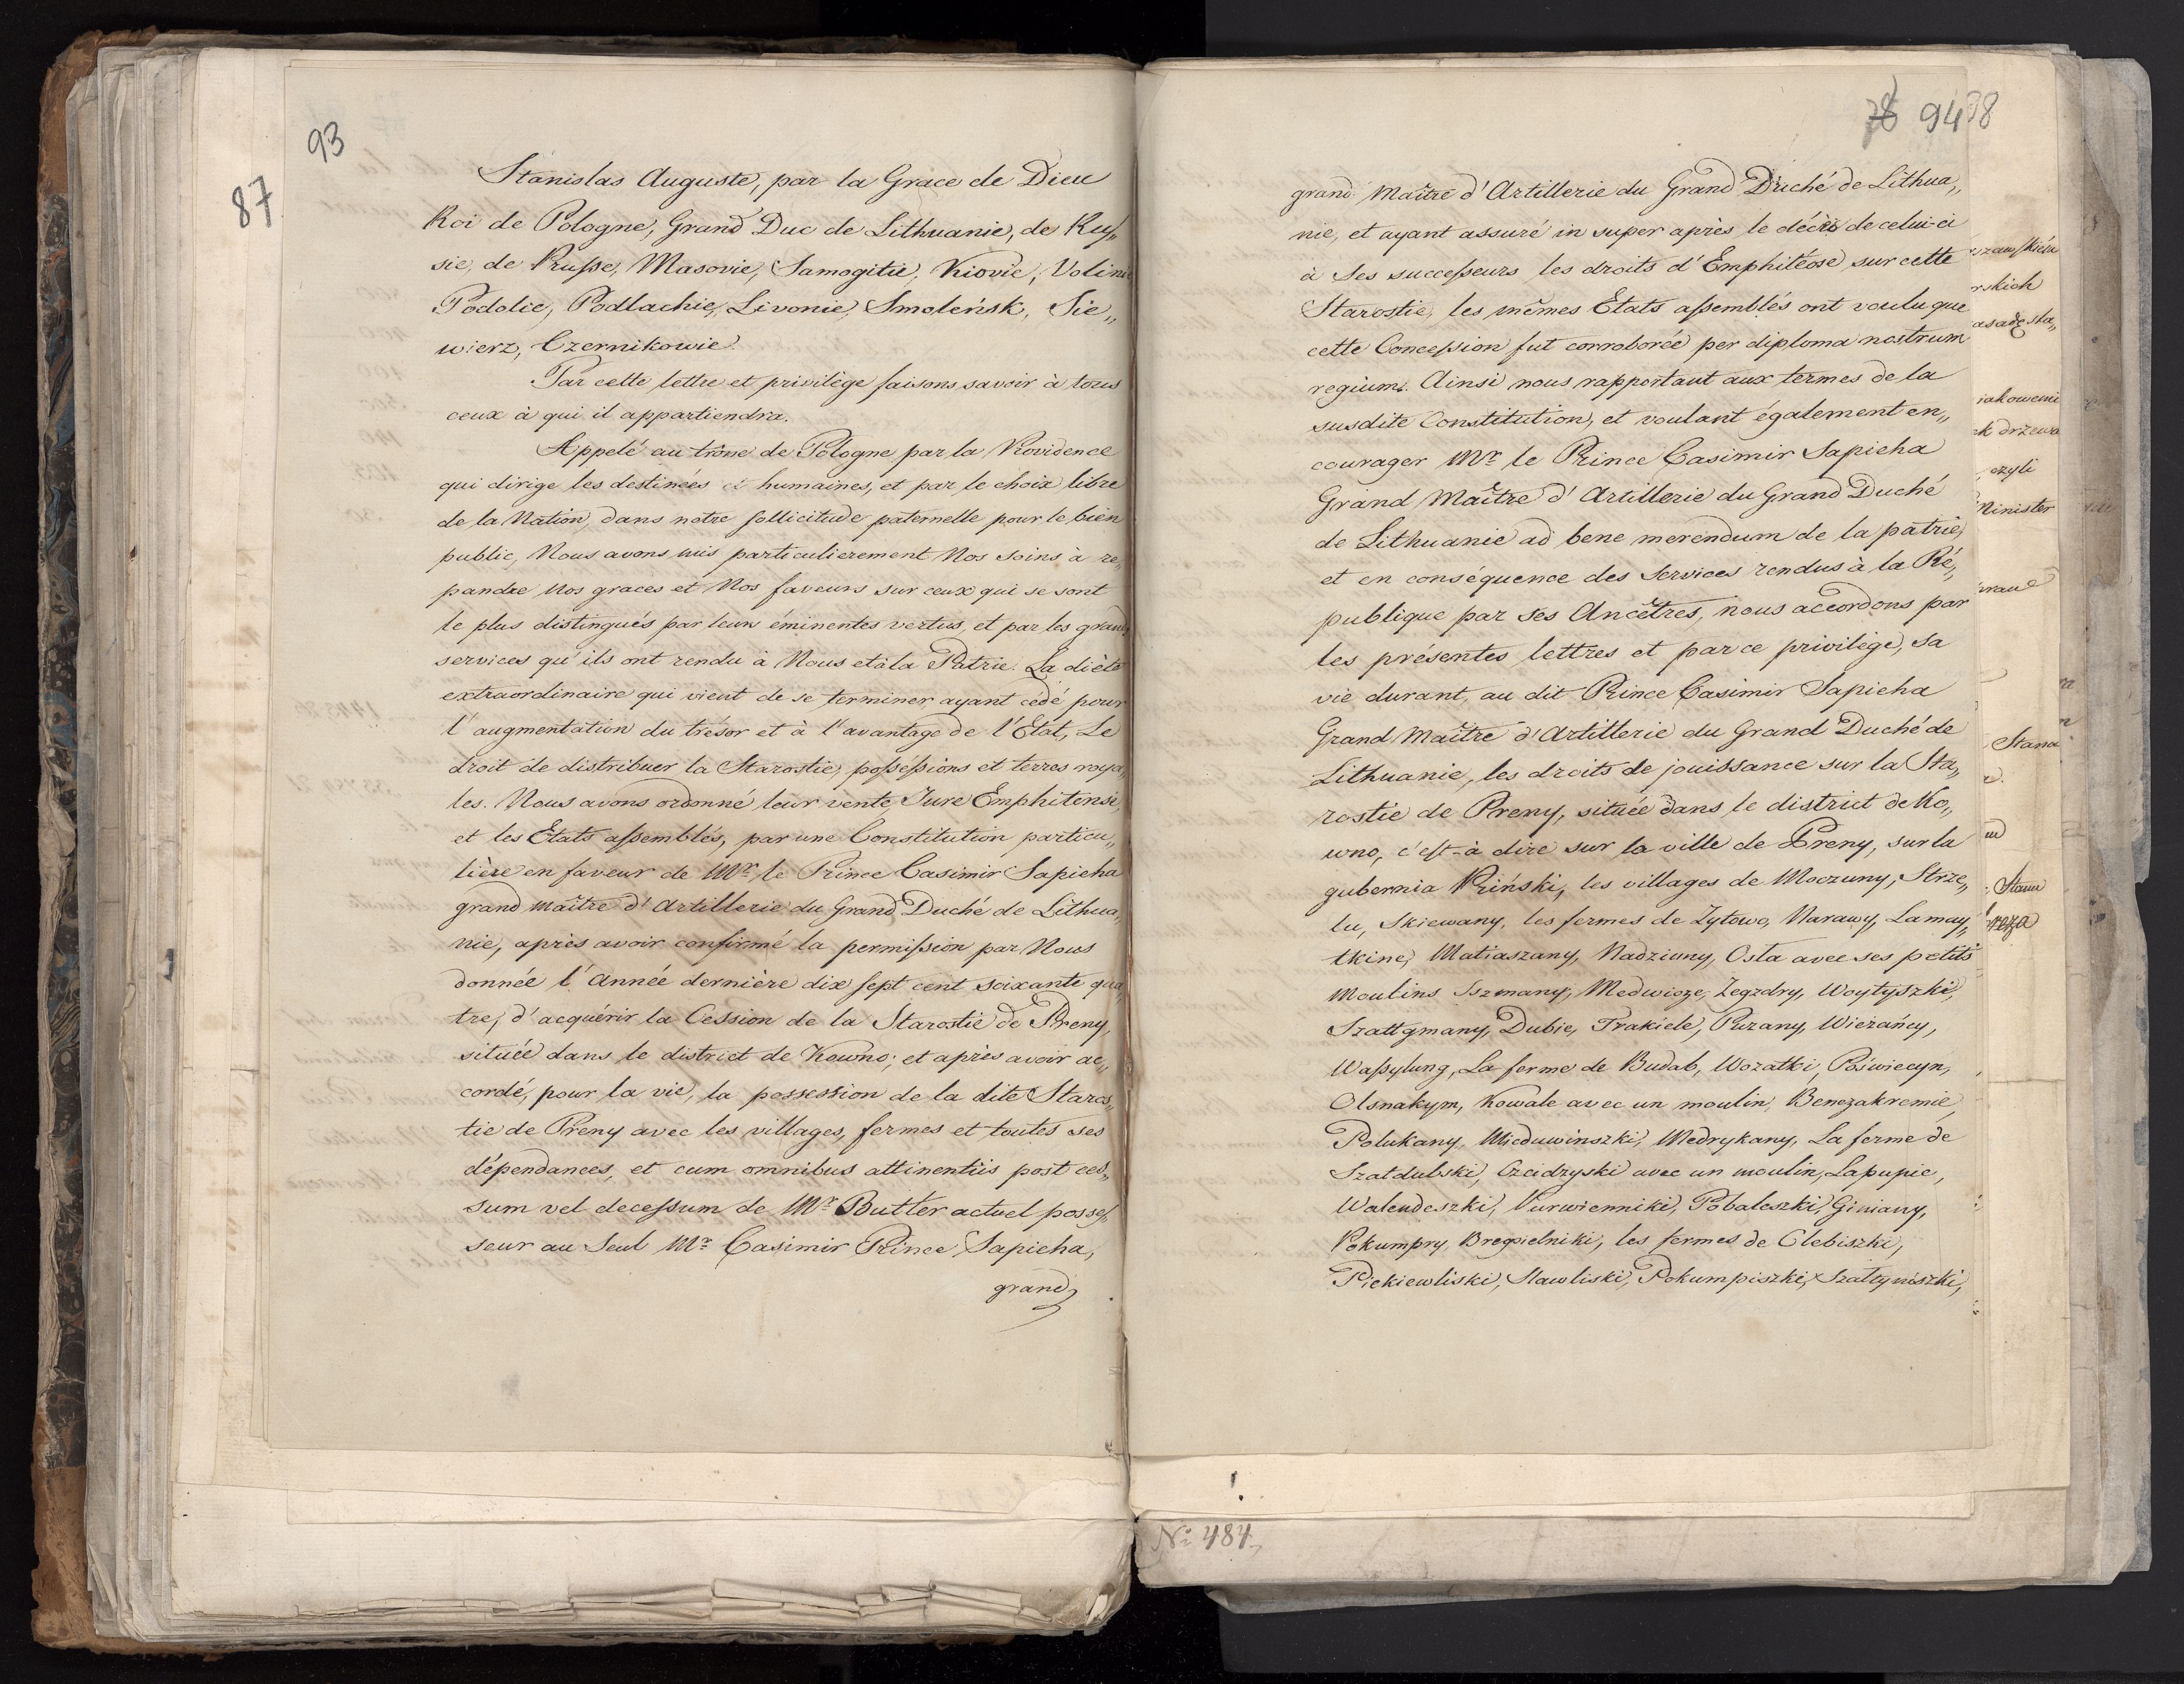 93
87
Stanislas Auguste, par la Grace de Dieu
Roi de Pologne, Grand Duc de Lithuanie, de Rus„
sie, de Prusse, Masovie, Samogitie, Kiovie, Volinie
Podolie, Podlachie, Livonie, Smoleńsk, Sie„
wierz, Czernikowie.
Par cette lettre et privilège faisons savoir à tous
ceux à qui il appartiendra.
Appelé au trône de Pologne par la Providence
qui dirige les destinées et humaines, et par le choix libre
de la Nation, dans notre sollicitude paternelle pour le bien
public, Nous avons mis particulierement Nos soins à re„
pandre Nos graces et Nos faveurs sur ceux qui se sont
le plus distingués par leurs éminentes vertus, et par les grands
services qu'ils ont rendu à Nous et à la Patrie. La diète
extraordinaire qui vient de se terminer ayant cédé pour
l'augmentation du trésor et à l'avantage de l'Etat, Le
droit de distribuer la Starostie, possessions et terres roya„
les. Nous avons ordonné leur vente Jure Emphitensi,
et les Etats assemblés, par une Constitution particu„
lière en faveur de Mr. le Prince Casimir Sapieha
grand maître d'Artillerie du Grand Duché de Lithua„
nie, après avoir confirmé la permission par Nous
donnée l'Année dernière dix sept cent soixante qua„
tre, d'acquérir la Cession de la Starostie de Preny,
située dans le district de Kowno; et après avoir ac„
cordé, pour la vie, la possession de la dite Staros„
tie de Preny avec les villages, fermes et toutes ses
dépendances, et cum omnibus attinentiis post ces„
sum vel decessum de Mr. Butler actuel posses„
seur au Seul Mr. Casimir Prince Sapieha,
grand
78 94 98
grand Maître d'Artillerie du Grand Duché de Lithua„
nie, et ayant assuré in super après le décès de celui-ci
à Ses successeurs les droits d'Emphitéose sur cette
Starostie, les mêmes Etats assemblés ont voulu que
cette Concession fut corroborée per diploma nostrum
regium. Ainsi nous rapportant aux termes de la
susdite Constitution, et voulant également en„
courager Mr. le Prince Casimir Sapieha
Grand Maître d'Artillerie du Grand Duché
de Lithuanie ad bene merendum de la patrie,
et en conséquence des Services rendus à la Ré„
publique par ses Ancêtres, nous accordons par
les présentes lettres et par ce privilège, sa
vie durant, au dit Prince Casimir Sapieha
Grand Maître d'Artillerie du Grand Duché de
Lithuanie, les droits de jouissance sur la Sta„
rostie de Preny, située dans le district de Ko„
wno, c'est-à dire sur la ville de Preny, sur la
gubernia Priński, les villages de Moczuny, Strze„
lu, Skiewany, les fermes de Zytowo, Narawy, Lamay„
tkine, Matiaszany, Nadziuny, Osta avec ses petits
Moulins Iszmany, Medwioze, Zegzdry, Woytyszki,
Szattgmany, Dubie, Trakiele, Puzany, Wieżańcy,
Wassylung, La ferme de Budab, Wozatki, Poświecyn,
Olsnakym, Kowale avec un moulin, Benezakremie,
Polukany, Mieduwinszki, Medrykany, La ferme de
Szatdubski, Ozcidzyski avec un moulin, Lapupie,
Walendeszki, Purwienniki, Pobaleszki, Giniany,
Pokumpry, Bregzielniki, les fermes de Clebiszki,
Piekiewliski, Stawliski, Pokumpiszki, Szattyniszki,
rskich
iakowemi
ek drzewa
czyli
Minister
No 484